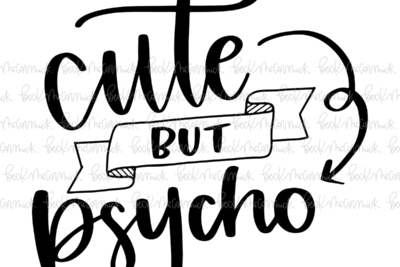 cute
BUT
psycho